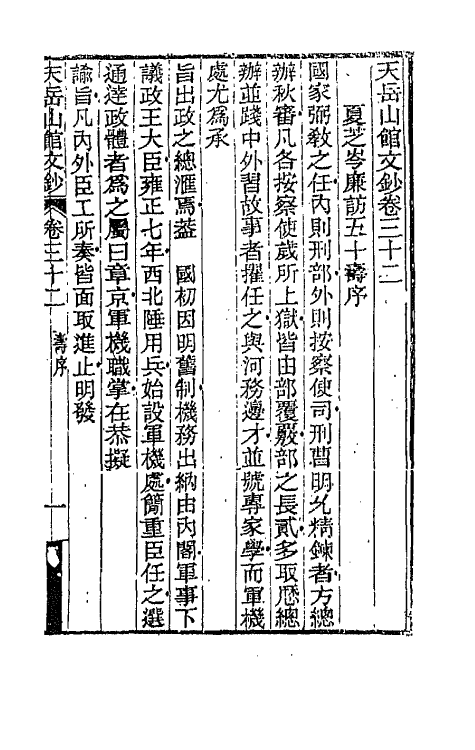 天岳山館文鈔卷三十二
夏芝岑廉訪五十壽序
國家弼敎之任內則刑部外則按察使司刑曹明允精鍊者方總
辦秋審凡各按察使歲所上獄皆由部覆覈部之長貳多取厯總
辦並踐中外習故事者擢任之與河務邊才並號專家學而軍機
處尤爲承
旨出政之總滙焉葢　國初因明舊制機務出納由內閣軍事下
議政王大臣雍正七年西北陲用兵始設軍機處簡重臣任之選
通達政體者爲之屬曰章京軍機職掌在恭擬
諭旨凡內外臣工所奏皆面取進止明發
天岳山館文鈔　卷三十二　壽序　一